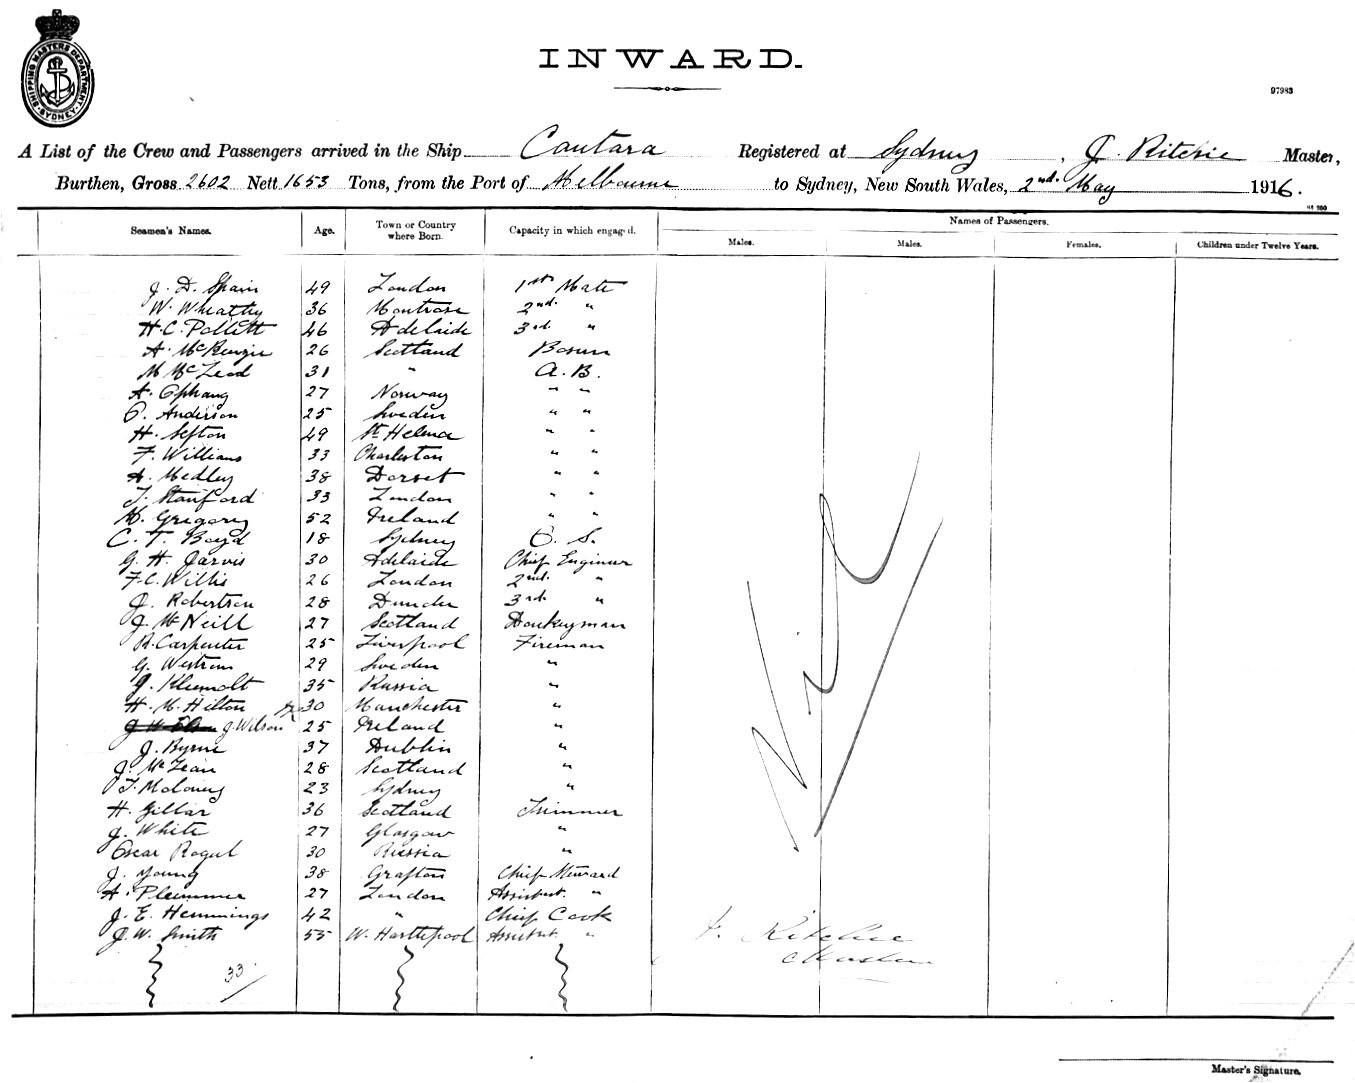 SHIPPING MASTERS DEPARTMENT SYDNEY
INWARD.
97983
A List of the Crew and Passengers arrived in the Ship Cantara Registered at Sydney, J. Ritchie Master,
Burthen, Gross 2602 Nett 1653 Tons, from the Port of Melbourne to Sydney, New South Wales, 2nd. May 1916.
Names of Passengers.
Seamen's Names. Age. Town or Country where Born. Capacity in which engaged. Males. Males. Females. Children under Twelve Years.
J. D. Spain 49 London 1st Mate
W. Wheatley 36 Montrose 2nd. "
H. C. Pollett 46 Adelaide 3rd. "
A. McKenzie 26 Scotland Bosun
M McLeod 31 " A. B.
A. Ophaug 27 Norway " "
O. Anderson 25 Sweden " "
H. Sefton 49 St Helena " "
F. Williams 33 Charleston " "
A. Medley 38 Dorset " "
T. Stanford 33 London " "
M. Gregory 52 Ireland " "
C. T. Boyd 18 Sydney O. S.
G. H. Jarvis 30 Adelaide Chief Engineer
F. C. Willis 26 London 2nd. "
J. Robertson 28 Dundee 3rd. "
J. McNeill 27 Scotland Donkeyman
R. Carpenter 25 Liverpool Fireman
G. Westrom 29 Sweden "
J. Klemolt 35 Russia "
H. M. Hilton 30 Manchester "
J. Wilson 25 Ireland "
J. Byrne 37 Dublin "
J. McLean 28 Scotland "
T. Moloney 23 Sydney "
H. Gillar 36 Scotland Trimmer
J. White 27 Glasgow "
Oscar Rogul 30 Russia "
J. Young 38 Grafton Chief Steward
A. Plummer 27 London Assistant. "
J. E. Hemmings 42 " Chief Cook
J. W. Smith 55 W. Hartlepool Assistant "
33
Nil
J. Ritchie
Master
Master's Signature.